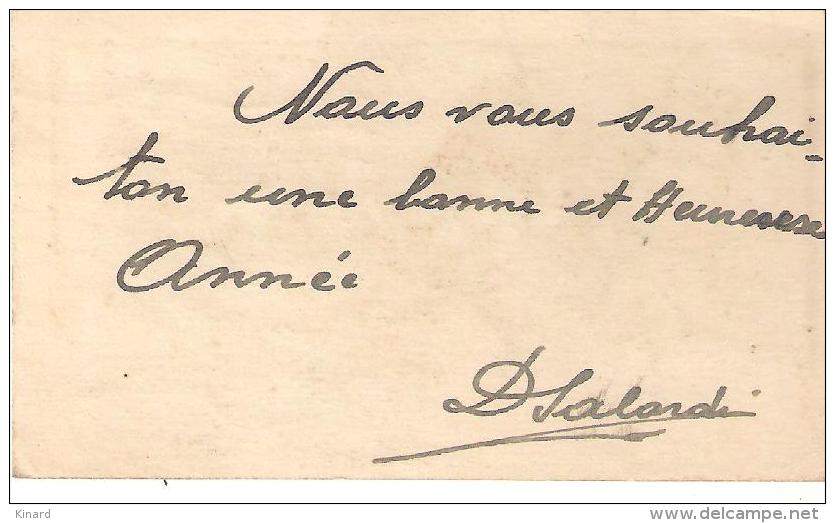 Nous vous souhai-
ton une bonne et Heureuse
Année
D Salardi
Kinard
delcampe.net